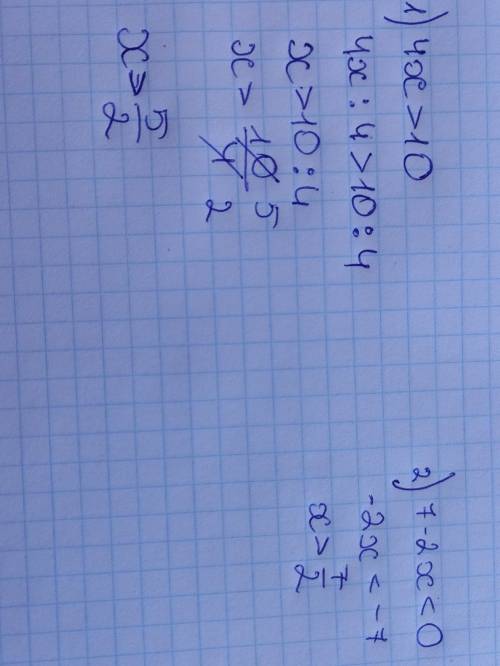 1) 4x > 10
4x : 4 > 10 : 4
x > 10 : 4
x > 10/4 5/2
x > 5/2
2) 7 - 2x < 0
-2x < -7
x > 7/2